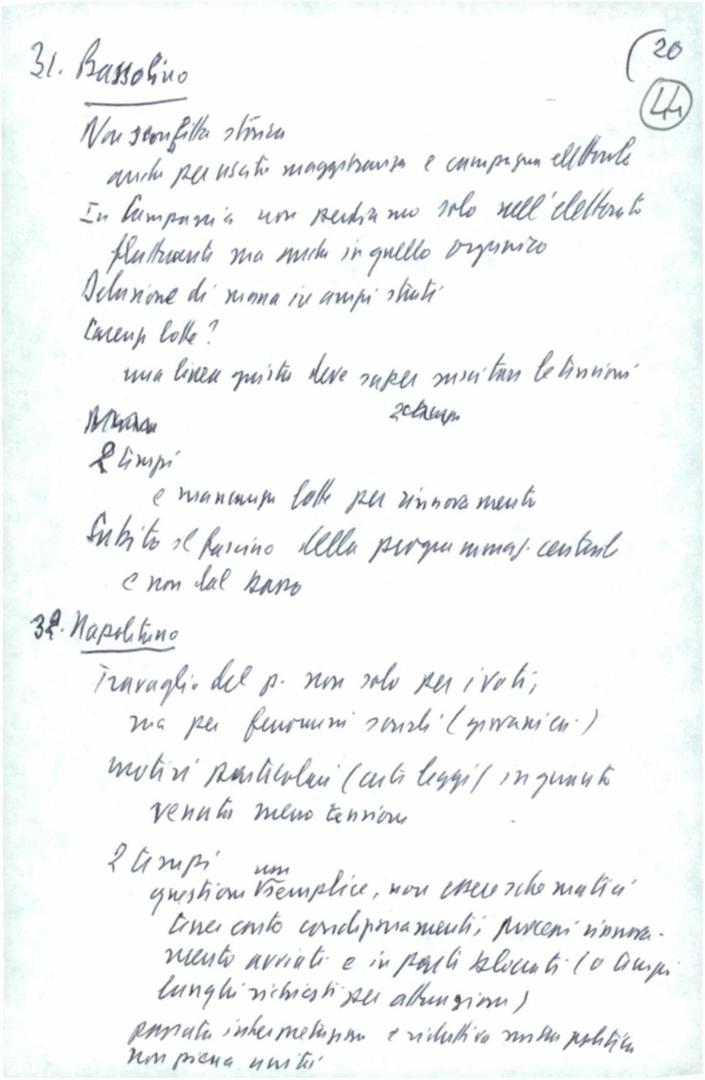 (20
44
31. Bassolino
Non sconfitta storica
anche per uscita maggioranza e campagna elettorale
In Campania non perdiamo solo nell'elettorato
fluttuante ma anche in quello organico
Delusione di massa in ampi strati
Carenza lotte?
una linea giusta deve saper suscitare le tensioni
2 tempi
e mancanza lotte per rinnovamento
Subito il fascino della programmaz. centrale
e non dal basso
32. Napolitano
Travaglio del p. non solo per i voti,
ma per fenomeni sociali (giovani ecc.)
motivi particolari (certe leggi) in quanto
venuta meno tensione
2 tempi
questione non semplice, non essere schematici
tener conto condizionamenti, processi rinnova-
mento avviati e in parte bloccati (o tempi
lunghi richiesti per attuazione)
passata interpretazione riduttiva nostra politica
non piena unità